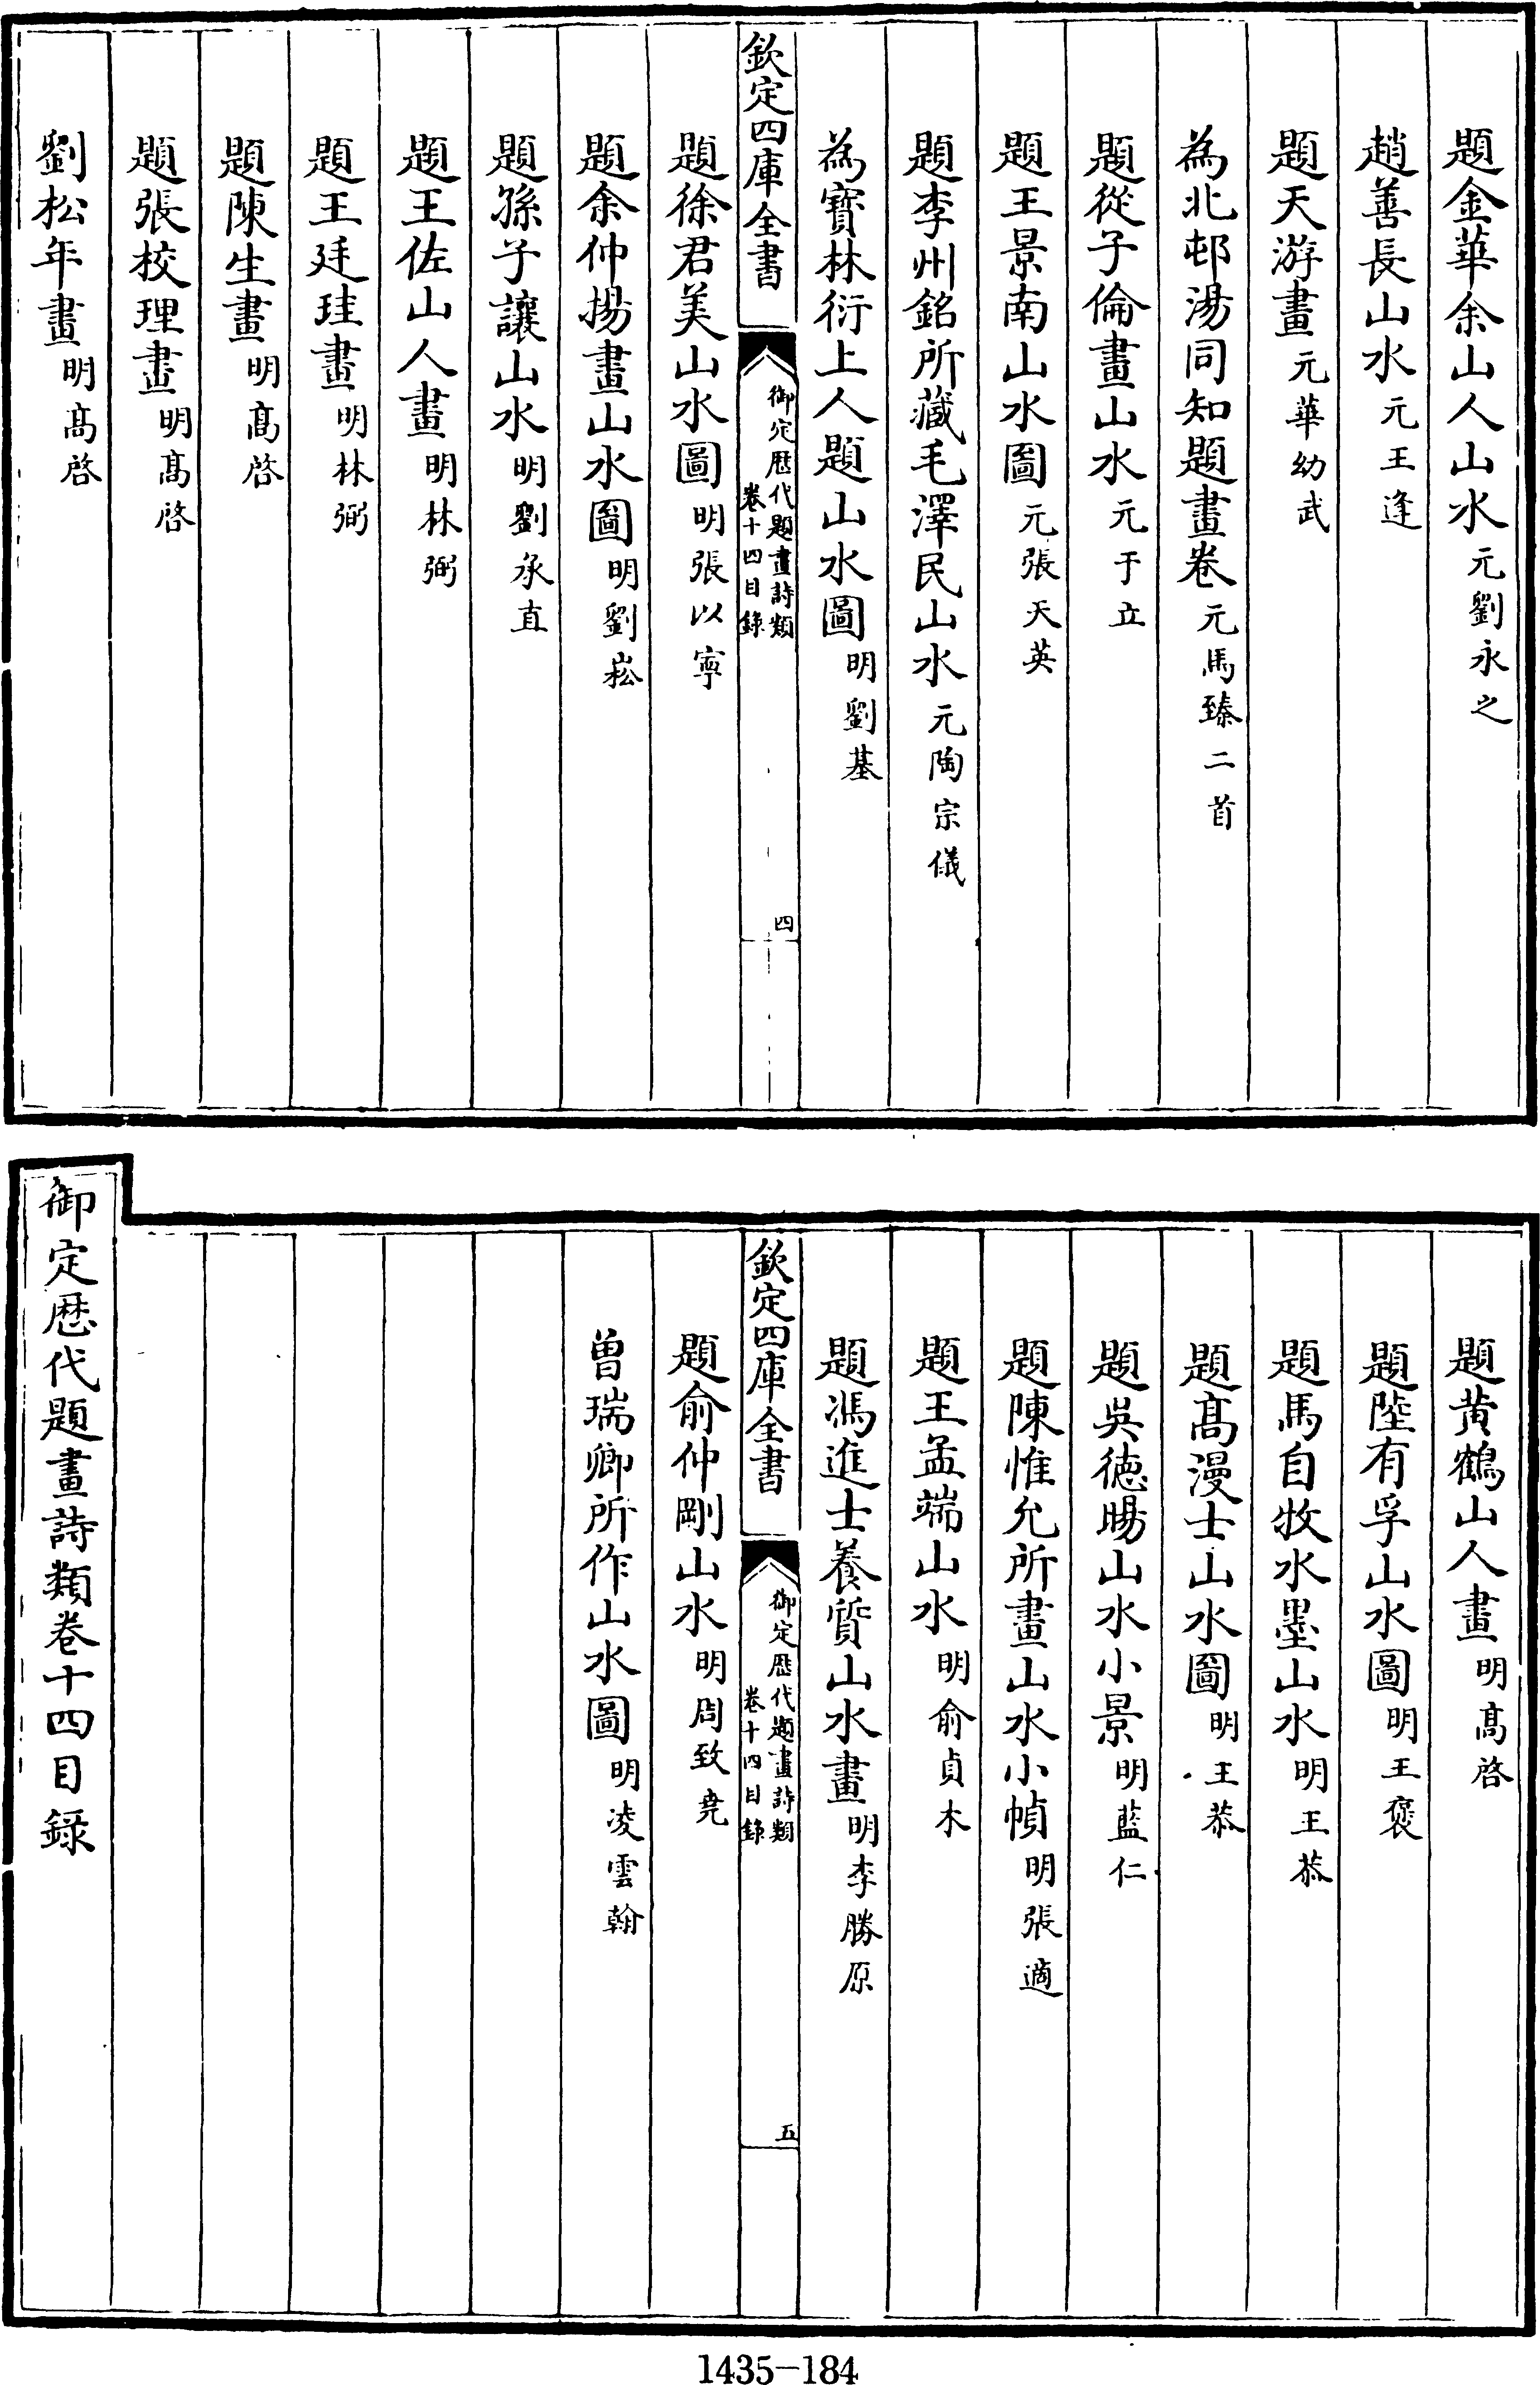 題金華余山人山水元劉永之
趙善長山水元王逢
題天游畫元華幼武
為北邨湯同知題畫卷元馬臻二首
題從子倫畫山水元于立
題王景南山水圖元張天英
題李州銘所藏毛澤民山水元陶宗儀
為寶林衍上人題山水圖明劉基
欽定四庫全書
御定歴代題畫詩類
卷十四目錄
四
題徐君美山水圖明張以寧
題余仲揚畫山水圖明劉崧
題孫子讓山水明劉承直
題王佐山人畫明林弼
題王廷珪畫明林弼
題陳生畫明髙啓
題張校理畫明髙啓
劉松年畫明髙啓
題黄鶴山人畫明髙啓
題陸有孚山水圖明王褒
題馬自牧水墨山水明王恭
題髙漫士山水圖明王恭
題吳徳暘山水小景明藍仁
題陳惟允所畫山水小幀明張適
題王孟端山水明俞貞木
題馮進士養質山水畫明李勝原
欽定四庫全書
御定歴代題畫詩類
卷十四目錄
五
題俞仲剛山水明周致堯
曽瑞卿所作山水圖明凌雲翰
御定歴代題畫詩類卷十四目錄
1435-184